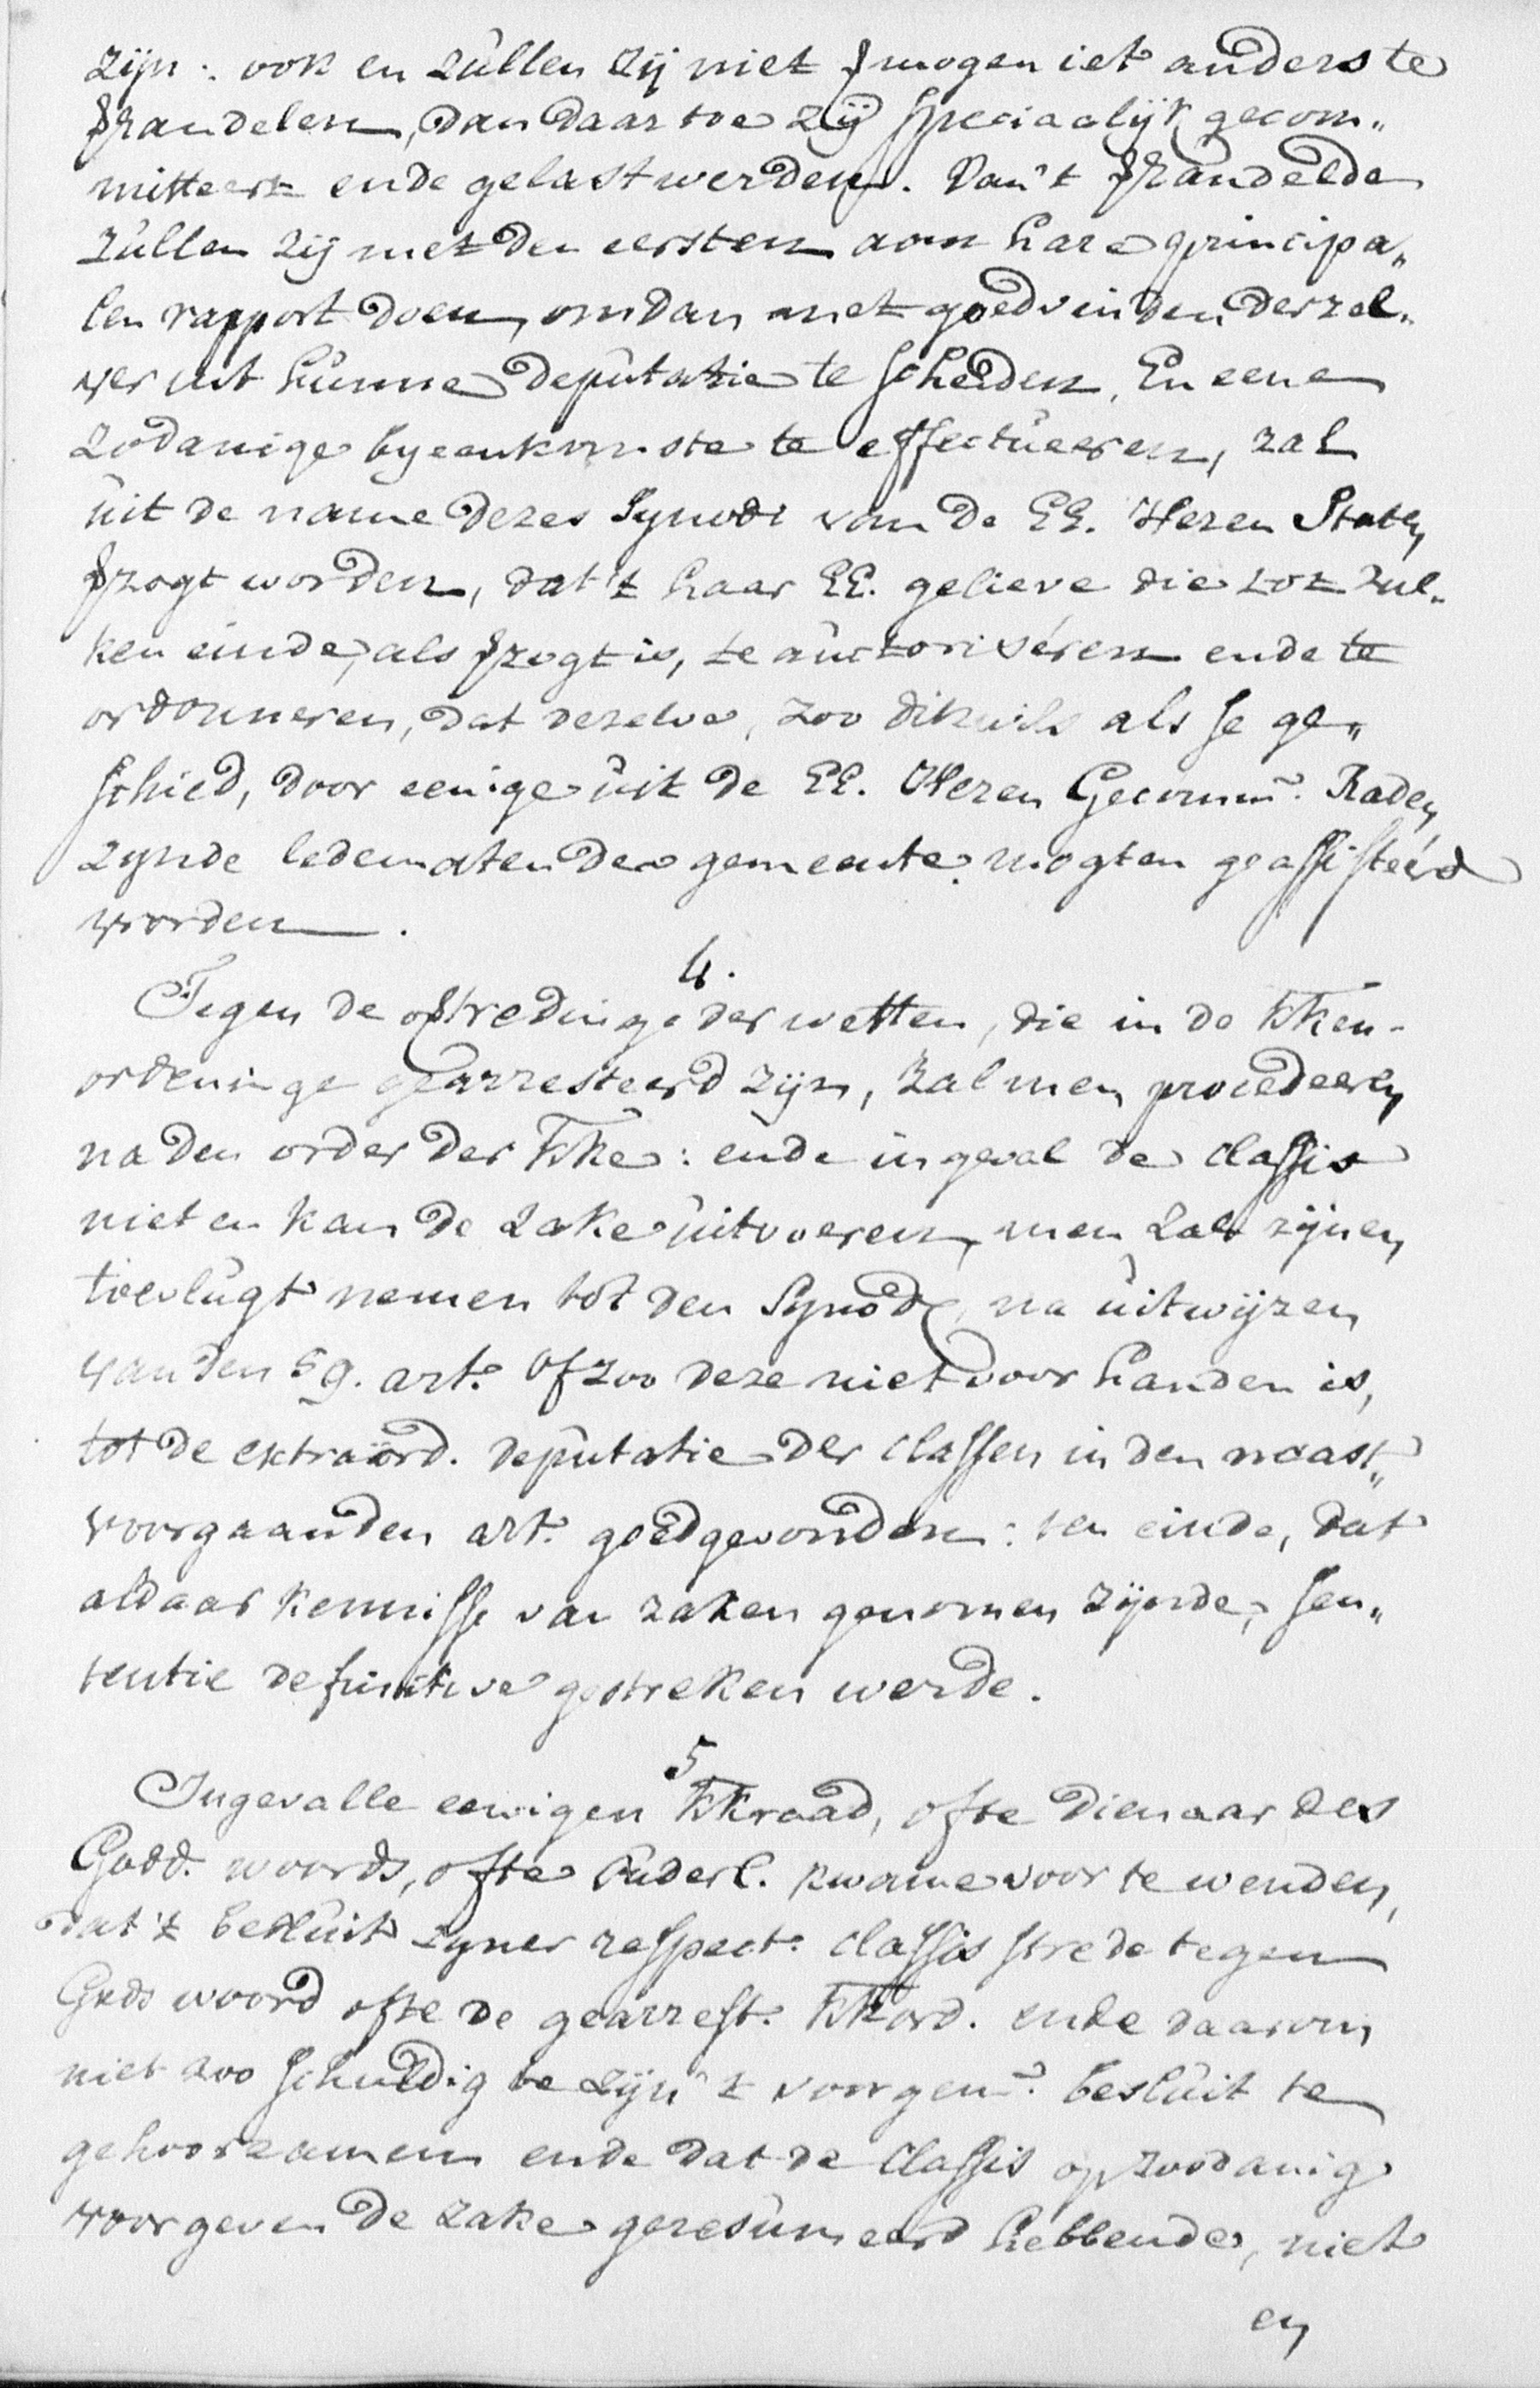 zijn: ook en zullen zij niet vermogen iet anders te
verhandelen, dan daar toe zij speciaalijk gecom„
mitteert ende gelast werden. Van 't verhandelde
zullen zij met den eersten aan hare principa„
len rapport doen, om dan met goedvinden derzel„
ver uit hunne deputatie te scheiden. En eene
zodanige byeenkomste te effectueeren, zal
uit de name dezes Synodi van de EE. Heren Staten
verzogt worden, dat 't haar EE. gelieve die tot zul„
ken einde, als verzogt is, te auctoriséren ende te
ordonneren, dat dezelve, zoo dikwils als se ge„
schied, door eenige uit de EE. Heren Gecomm. Raden
zynde ledematen der gemeente mogten geassisteérd
worden.
4.
Tegen de overtredinge der wetten, die in de KKen-
ordeninge gearresteerd zijn, zal men procedeeren
na den order der KKe: ende ingeval de classis
niet en kan de zake uitvoeren, men zal zijnen
toevlugt nemen tot den Synode, na uitwijzen
van den 59. art. Of zoo deze niet voor handen is,
tot de extraörd. deputatie der classen in den naast„
voorgaanden art. goedgevonden: ten einde, dat
aldaar kennisse van zaken genomen zijnde, sen„
tentie definitive gestreken werde.
5
Ingevalle eenigen KKraad, ofte Dienaar des
Godd. woords, ofte Ouderl. kwame voor te wenden,
dat 't besluit zyner respect. classis strede tegen
Gods woord ofte de gearrest. KKord. ende daarom
niet zoo schuldig te zijn 't voorgen. besluit te
gehoorzamen ende dat de Classis op zoodanig
voorgeven de zake geresumeerd hebbende, niet
en